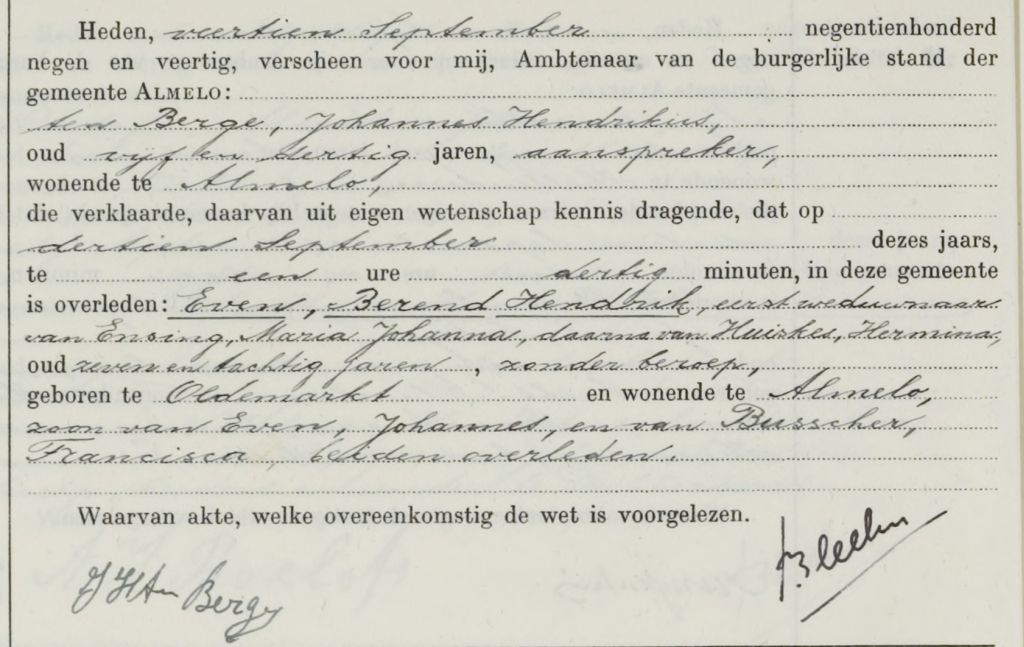 Heden, veertien September negentienhonderd
negen en veertig, verscheen voor mij, Ambtenaar van de burgerlijke stand der
gemeente ALMELO:
ten Berge, Johannes Hendrikus,
oud vijf en dertig jaren, aanspreker,
wonende te Almelo,
die verklaarde, daarvan uit eigen wetenschap kennis dragende, dat op
dertien September dezes jaars,
te een ure dertig minuten, in deze gemeente
is overleden: Even, Berend Hendrik, eerst weduwnaar
van Ensing, Maria Johanna, daarna van Huiskes, Hermina,
oud zeven en tachtig jaren, zonder beroep,
geboren te Oldemarkt en wonende te Almelo,
zoon van Even, Johannes, en van Busscher,
Francisca, beiden overleden.
Waarvan akte, welke overeenkomstig de wet is voorgelezen.
J H ten Berge